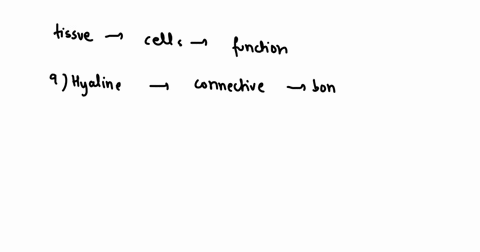 tissue → cells → function
9) Hyaline → connective → bon